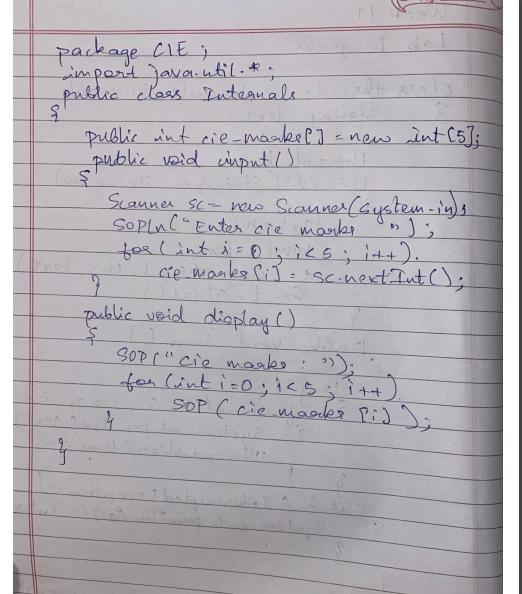 package CIE ;
import java.util.* ;
public class Internals
{
public int cie_marks[] = new int[5];
public void input()
{
Scanner sc = new Scanner(System.in);
SOPln("Enter cie marks ");
for( int i = 0 ; i<5 ; i++).
cie_marks[i] = sc.nextInt();
}
public void display()
{
SOP("cie marks : ");
for (int i=0 ; i<5 ; i++)
SOP ( cie_marks [i] );
}
}